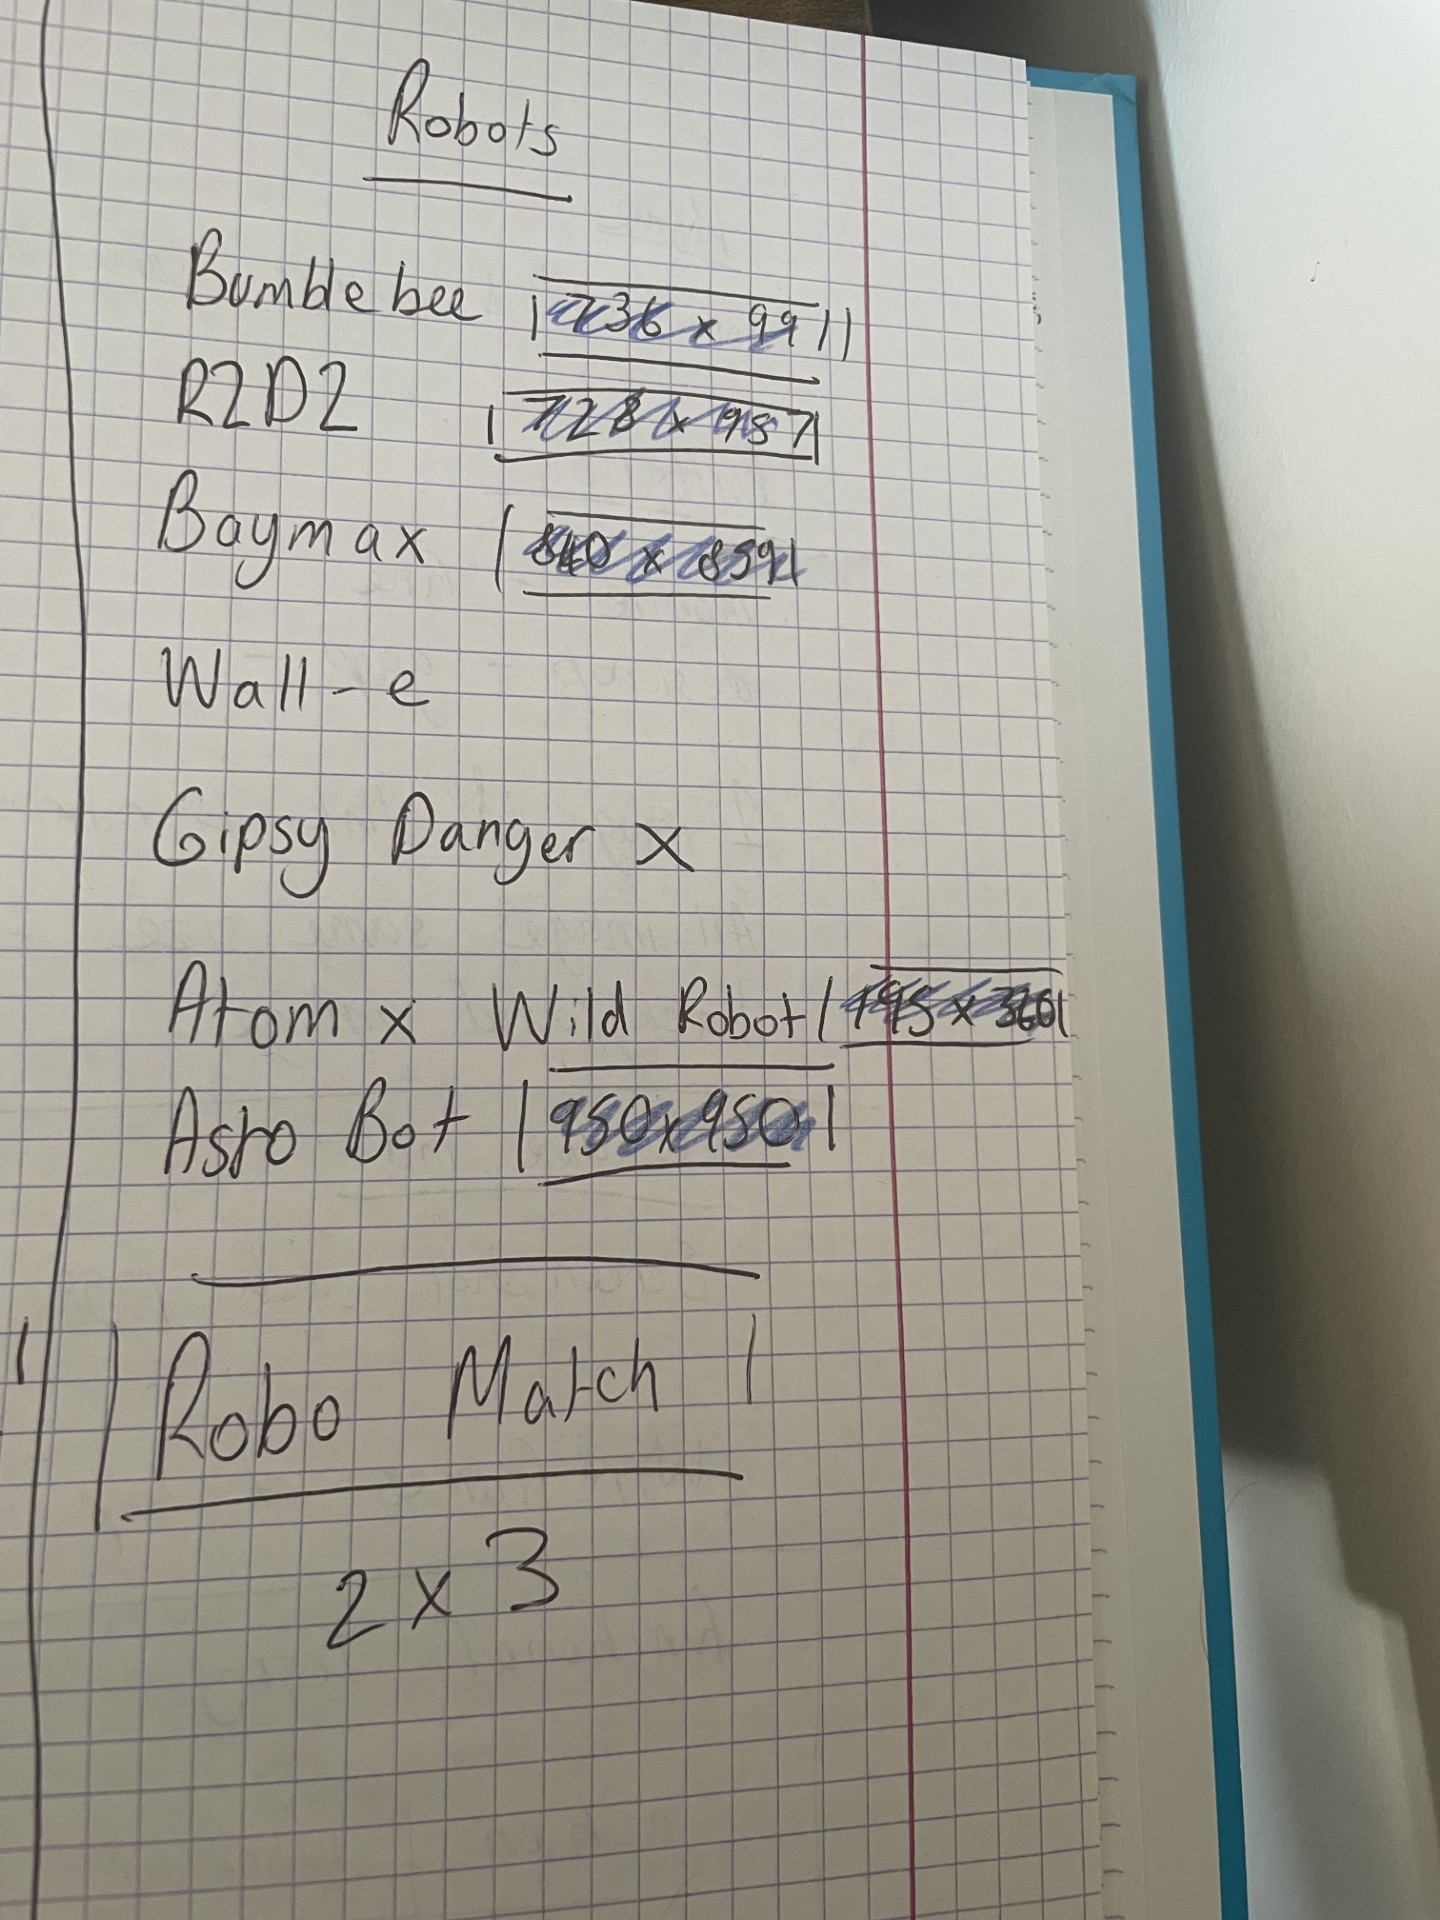 Robots
Bumblebee | 736 x 991 |
R2D2 | 728 x
Baymax | 840 x 859 |
Wall-e
Gipsy Danger x
Atom x Wild Robot |
Astro Bot | 950x950 |
Robo Match
2 x 3